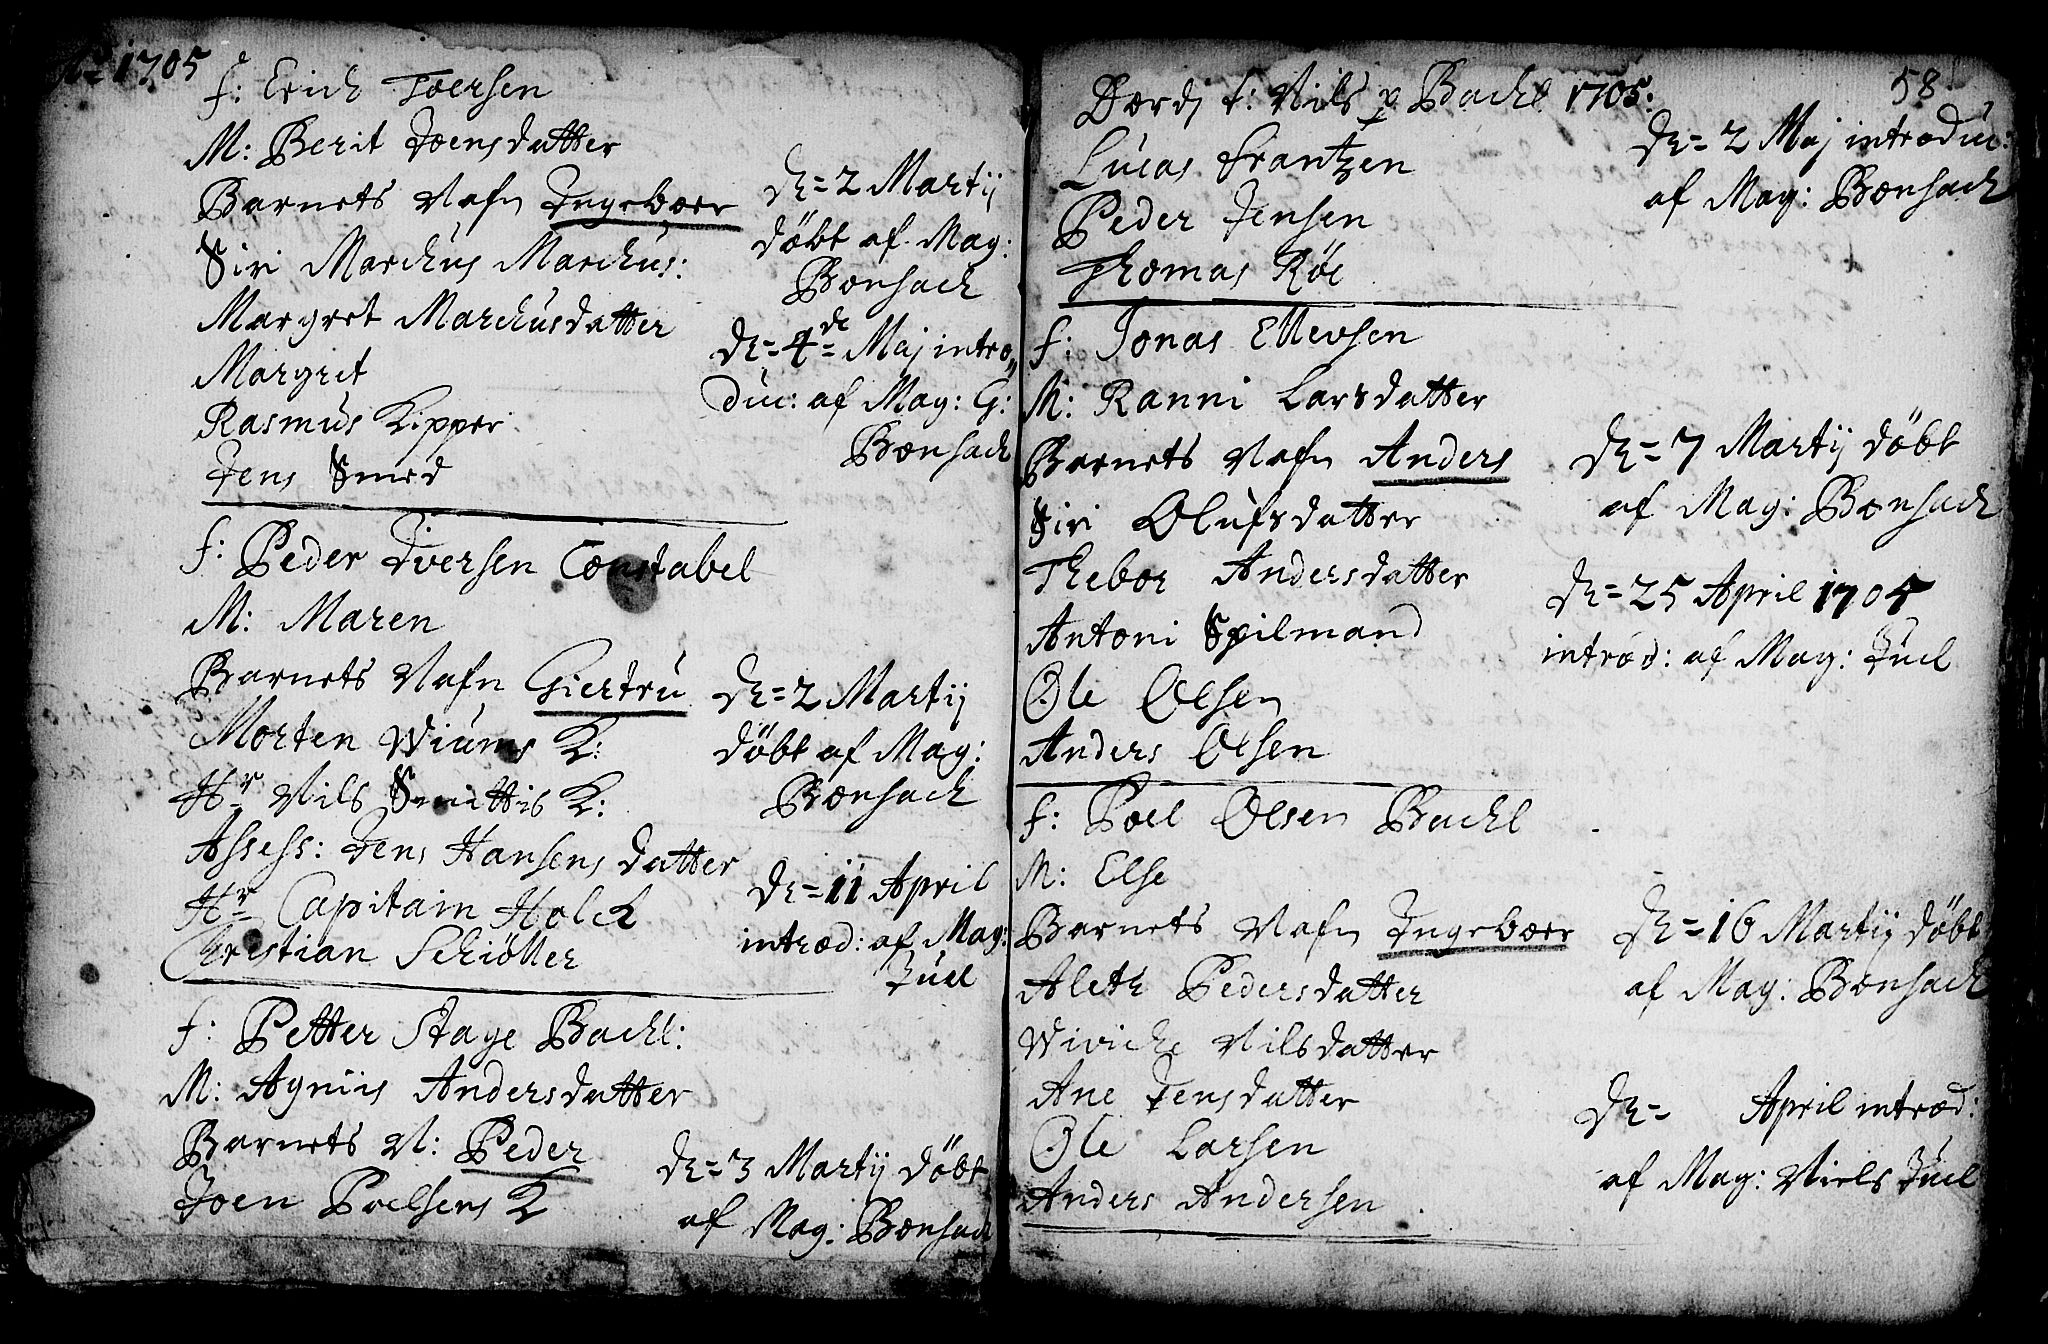 Aō 1705
f: Erich Toersen
M: Berit Joensdatter
Barnets Nafn Ingeboer
Siri Marchus Marchus:
Margret Marchusdatter
Margrit
Rasmus Kipper
Jens Smed
D: = 2 Martij
döbt af Mag:
Bonsach
D: = 4de Maj intro„
duc: af Mag: G:
Bonsach
f: Peder Iversen Constabel
M: Maren
Barnets Nafn Giertru
Morten Wiums K:
Hr Nils Smittis K:
Assess: Jens Hansens datter
Hr Capitain Holck
Christian Schiöller
D: = 2 Martij
döbt af Mag:
Bonsach
D: = 11 April
introd: af Mag:
Juel
f: Petter Stage Bachl:
M: Agniis Andersdatter
Barnets N: Peder
Joen Poelsens K
D: = 3 Martij döbt
af Mag: Bonsach
58
Dordj f: Nils p Bachl 1705:
Lucas Frantzen
Peder Jensen
Thomas Röe
D: = 2 Maj introduc:
af Mag: Bonsach
f: Jonas Ellevsen
M: Ranni Larsdatter
Barnets Nafn Anders
Siri Olufsdatter
Thebor Andersdatter
Antoni Spilmand
Ole Olsen
Anders Olsen
D: = 7 Martij döbt
af Mag: Bonsach
D: = 25 April 1705
introd: af Mag: Juel
f: Poel Olsen Bachl
M: Else
Barnets Nafn Ingeboer
Aleth Pedersdatter
Wiviche Nilsdatter
Ane Jensdatter
Ole Larsen
Anders Andersen
D: = 16 Martij döbt
af Mag: Bonsach
D: = April introd:
af Mag: Niels Juel